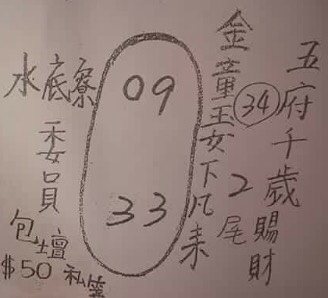 五府千歲賜財
金童玉女下凡來
34
2尾
09
33
水底寮
委員
包壇
$50 私壇